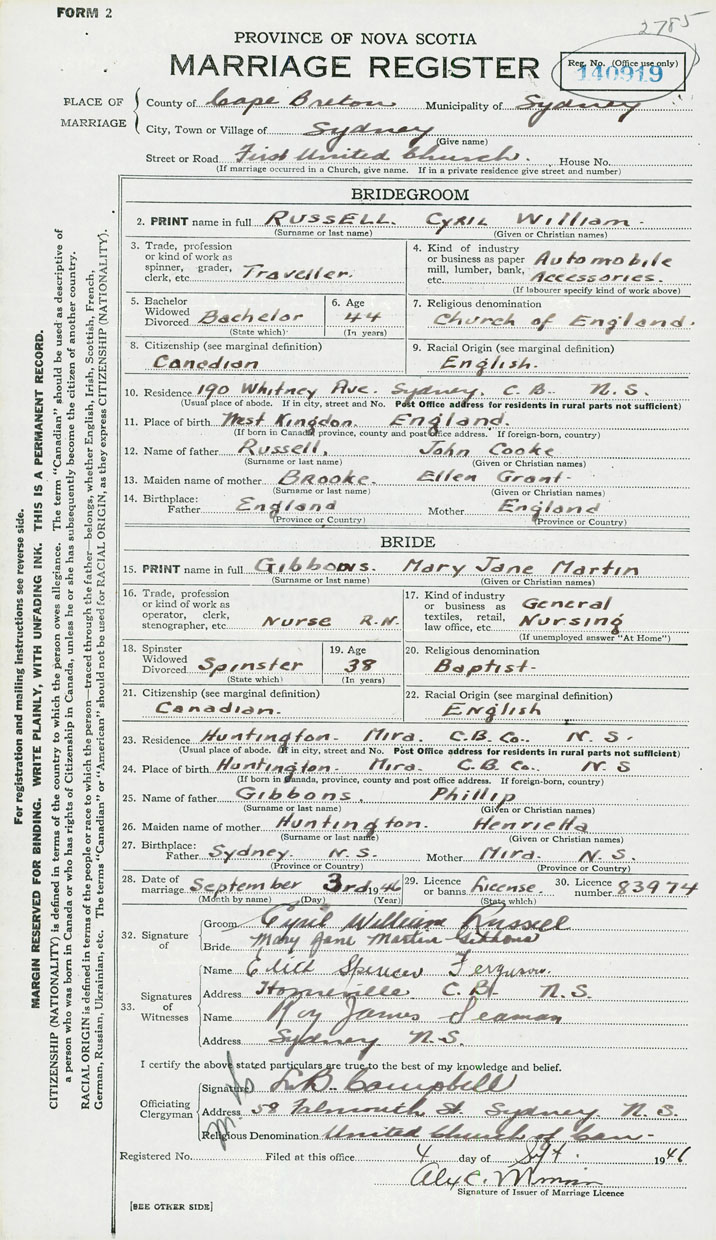 FORM 2
2785
PROVINCE OF NOVA SCOTIA
MARRIAGE REGISTER
Reg. No. (Office use only)
140919
PLACE OF MARRIAGE
County of Cape Breton Municipality of Sydney
City, Town or Village of Sydney
(Give name)
Street or Road First United Church. House No.
(If marriage occurred in a Church, give name. If in a private residence give street and number)
BRIDEGROOM
2. PRINT name in full RUSSELL. CYRIL William
(Surname or last name) (Given or Christian names)
3. Trade, profession or kind of work as spinner, grader, clerk, etc. Traveller.
4. Kind of industry or business as paper mill, lumber, bank, etc. Automobile Accessories.
(If labourer specify kind of work above)
5. Bachelor Widowed Divorced Bachelor
(State which)
6. Age 44
(In years)
7. Religious denomination
Church of England.
8. Citizenship (see marginal definition)
Canadian
9. Racial Origin (see marginal definition)
English.
10. Residence 190 Whitney Ave. Sydney. C. B. N. S.
(Usual place of abode. If in city, street and No. Post Office address for residents in rural parts not sufficient)
11. Place of birth West Kingdon. England.
(If born in Canada, province, county and post office address. If foreign-born, country)
12. Name of father Russell, John Cooke
(Surname or last name) (Given or Christian names)
13. Maiden name of mother BROOKE. Ellen Grant
(Surname or last name) (Given or Christian names)
14. Birthplace:
Father England Mother England
(Province or Country) (Province or Country)
BRIDE
15. PRINT name in full Gibbons. Mary Jane Martin
(Surname or last name) (Given or Christian names)
16. Trade, profession or kind of work as operator, clerk, stenographer, etc. Nurse R.N.
17. Kind of industry or business as textiles, retail, law office, etc. General Nursing
(If unemployed answer "At Home")
18. Spinster Widowed Divorced Spinster
(State which)
19. Age 38
(In years)
20. Religious denomination
Baptist
21. Citizenship (see marginal definition)
Canadian.
22. Racial Origin (see marginal definition)
English
23. Residence Huntington. Mira. C.B. Co. N. S.
(Usual place of abode. If in city, street and No. Post Office address for residents in rural parts not sufficient)
24. Place of birth Huntington. Mira. C.B. Co. N. S
(If born in Canada, province, county and post office address. If foreign-born, country)
25. Name of father Gibbons. Phillip
(Surname or last name) (Given or Christian names)
26. Maiden name of mother Huntington. Henrietta
(Surname or last name) (Given or Christian names)
27. Birthplace:
Father Sydney. N. S. Mother Mira. N. S.
(Province or Country) (Province or Country)
28. Date of marriage September 3rd 1946
(Month by name) (Day) (Year)
29. Licence or banns License
(State which)
30. Licence number 83974
32. Signature of
Groom Cyril William Russell
Bride Mary Jane Martin Gibbons
33. Signatures of Witnesses
Name Edith Spencer Ferguson.
Address Homeville C. B. N. S.
Name Roy James Seaman
Address Sydney N.S.
I certify the above stated particulars are true to the best of my knowledge and belief.
Officiating Clergyman
Signature Campbell
Address 58 Falmouth St. Sydney N. S.
Religious Denomination United Church of Can-
Registered No. Filed at this office 4 day of Sept. 1946
Alex C.
Signature of Issuer of Marriage Licence
[SEE OTHER SIDE]
For registration and mailing instructions see reverse side.
MARGIN RESERVED FOR BINDING. WRITE PLAINLY, WITH UNFADING INK. THIS IS A PERMANENT RECORD.
CITIZENSHIP (NATIONALITY) is defined in terms of the country to which the person owes allegiance. The term "Canadian" should be used as descriptive of
a person who was born in Canada or who has rights of Citizenship in Canada, unless he or she has subsequently become the citizen of another country.
RACIAL ORIGIN is defined in terms of the people or race to which the person—traced through the father—belongs, whether English, Irish, Scottish, French,
German, Russian, Ukrainian, etc. The terms "Canadian" or "American" should not be used for RACIAL ORIGIN, as they express CITIZENSHIP (NATIONALITY).